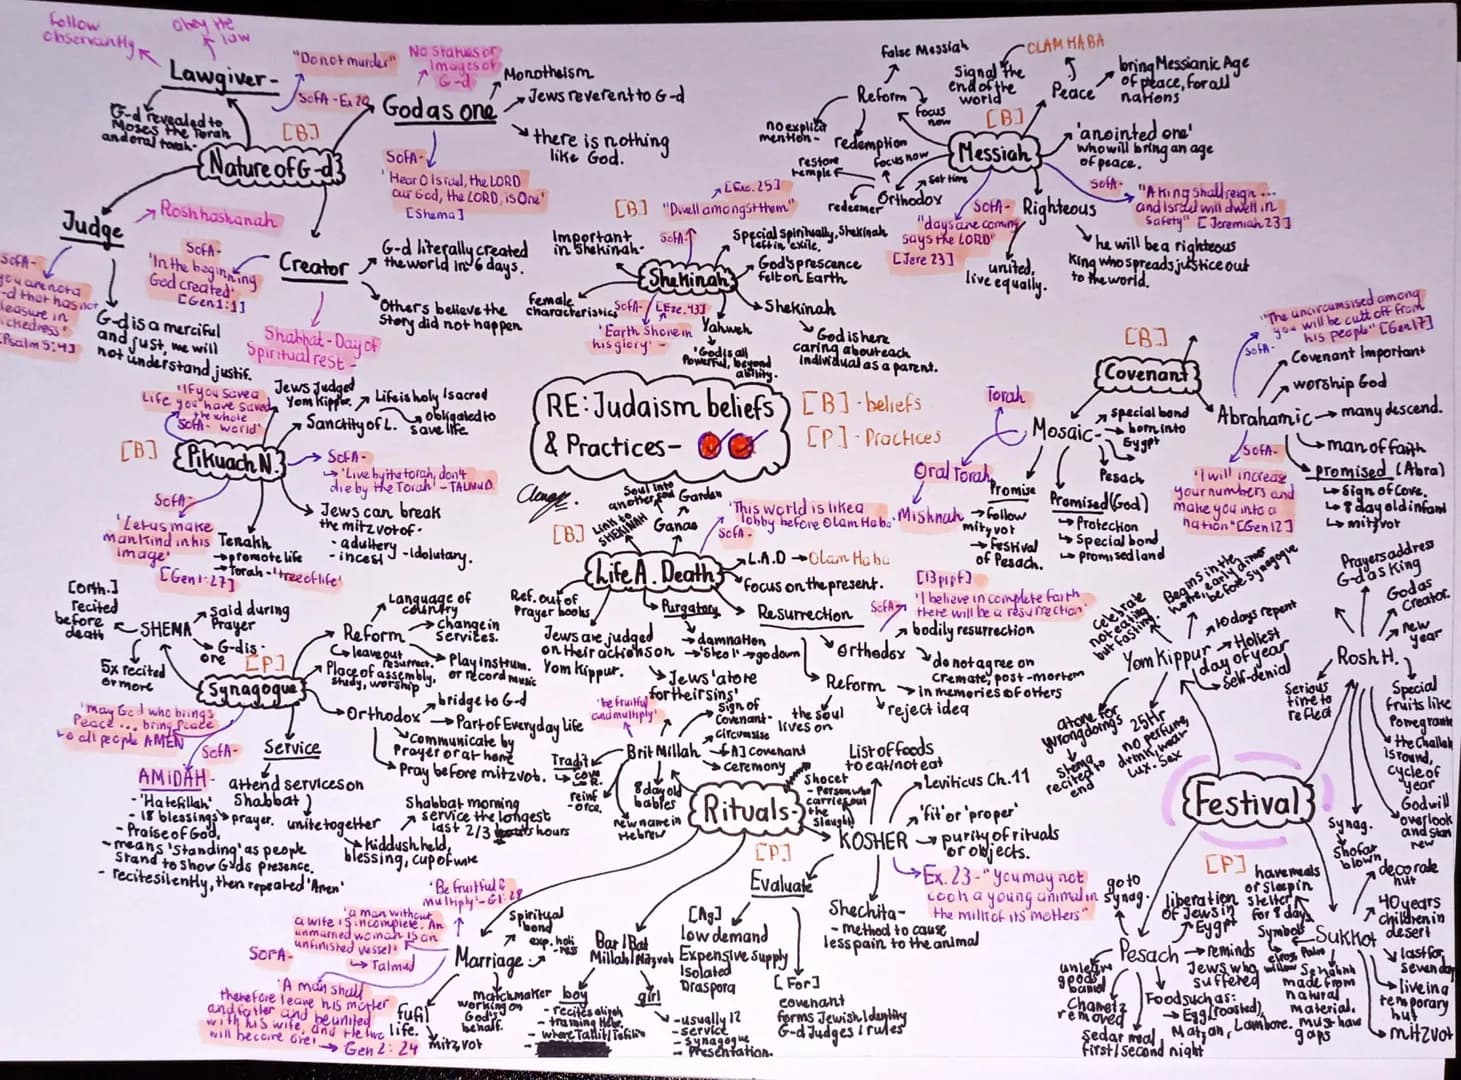 follow
observantly
obey the
law
Lawgiver-
"Do not murder"
SofA - Ex 20
G-d revealed to
Moses the Torah
and oral torah.
[B]
Nature of G-d
No statues or
Images of
G-d
God as one
Monotheism
Jews reverent to G-d
there is nothing
like God.
SofA-
'Hear O Israel, the LORD
our God, the LORD, is One'
[Shema]
Judge
Rosh hashanah
SofA-
G-d is a merciful
and just, we will
not understand justif.
[Psalm 5:4]
SofA-
'In the beginning
God created'
[Gen 1:1]
Creator
G-d literally created
the world in 6 days.
Others believe the
Story did not happen
Shabbat - Day of
Spiritual rest -
False Messiah
Reform
focus
now
no explicit
mention-
redemption
restore
temple
focus now
Orthodox
set time
redeemer
Signal the
end of the
world
OLAM HABA
Peace
bring Messianic Age
of peace, for all
nations
[B]
Messiah
'anointed one'
who will bring an age
of peace.
SofA-
"A King shall reign ...
and Israel will dwell in
Safety" [Jeremiah 23]
SofA-
"days are coming
says the LORD"
[Jere 23]
Righteous
united,
live equally.
he will be a righteous
King who spreads justice out
to the world.
[B]
"Dwell amongst them"
SofA-
Important
in Shekinah-
Shekinah
Special spiritually, Shekinah
left in exile.
God's prescence
felt on Earth
female
characteristics
SofA- [Eze. 43]
'Earth Shone in
his glory' -
Yahweh
'God is all
Powerful, beyond
ability.
Shekinah
God is here
caring about each
individual as a parent.
RE: Judaism beliefs
& Practices-
[B] - beliefs
[P] - Practices
[B]
Covenant
Torah
Mosaic-
special bond
born into
Eygpt
Pesach
Oral Torah
Mishnah
Promise
follow
mitzvot
Festival
of Pesach.
Promised (God)
Protection
Special bond
promised land
"The uncircumsised among
you will be cutt off from
his people" [Gen 17]
SofA-
Abrahamic
Covenant Important
worship God
many descend.
man of faith
promised (Abra)
Sign of Cove.
8 day old infant
mitzvot
SofA-
"I will increase
your numbers and
make you into a
nation" [Gen 12]
'If you save a
Life you have saved
the whole
SofA- world'
[B]
Pikuach N.
Jews Judged
Yom Kippur.
Sanctity of L.
Life is holy/sacred
obligated to
save life.
SofA-
'Live by the torah, don't
die by the Torah' - TALMUD
Jews can break
the mitzvot of -
- adultery - Idolutary.
- incest
SofA-
'Let us make
mankind in his
image'
[Gen 1:27]
Tenakh
promote life
Torah - 'tree of life'
[B]
Life A. Death
Link to
SHEKINAH
Soul into
another
Garden
Ganae
'This world is like a
lobby before Olam Haba'
SofA-
L.A.D
Olam Haba
focus on the present.
Ref. out of
Prayer books
Jews are judged
on their actions on
Yom Kippur.
Purgatory
damnation
'Sheol' go down
Jews 'atone
for their sins'
Resurrection
[13 p/pf]
SofA-
'I believe in complete faith
there will be a resurrection'
Orthodox
bodily resurrection
do not agree on
Cremate, post-mortem
Reform
in memories of others
reject idea
the soul
lives on
[Orth.]
recited
before
death
SHEMA
said during
Prayer
G-d is
one
5x recited
or more
[P]
Synagogue
Reform
Language of
country
change in
Services.
leave out
resurrect.
Play instrum.
or record music
Place of assembly,
study, worship
Orthodox
bridge to G-d
Part of Everyday life
communicate by
Prayer or at home
Pray before mitzvot.
'may God who brings
Peace ... bring Peace
to all people AMEN
SofA-
AMIDAH-
- 'Hatefillah'
- 18 blessings prayer.
- Praise of God,
- means 'standing' as people
Stand to show Gods presance.
- recite silently, then repeated 'Amen'
Service
attend services on
Shabbat
unite together
Shabbat morning
service the longest
last 2/3 hours
Kiddush held,
blessing, cup of wine
Rituals-
[P]
Brit Millah
'be fruitful
and multiply'
sign of
Covenant-
circumsise
[A] covenant
ceremony
Tradit
8 day old
babies
new name in
Hebrew
KOSHER
Shocet
- Person who
carries out
the
slaught
List of foods
to eat/not eat
Leviticus Ch. 11
'fit' or 'proper'
purity of rituals
or objects.
Ex. 23 - "You may not
cook a young animal in
the milk of its mothers"
Shechita-
- method to cause
less pain to the animal
Evaluate
[Ag]
low demand
Expensive supply
Isolated
Diaspora
[For]
covenant
forms Jewish Identity
G-d Judges / rules
'Be fruitful &
multiply' - G1:28
'a man without
a wife is incomplete. An
unmarried woman is an
unfinished vessel'
Talmud
SofA-
'A man shall
therefore leave his mother
and father and be united
with his wife, and the two
will become one'
Gen 2:24
Marriage
Spiritual
bond
matchmaker
working on
God's
behalf.
fulfil
life.
mitzvot
Bar/Bat
Millah/Mitzvah
boy
- recites aliyah
- training Hebr.
- where Tallit/Tefilin
girl
- usually 12
- service
- synagogue
- Presentation.
Yom Kippur
celebrate
not eating
but fasting.
Begins in the
home, early dinner
before synagogue
10 days repent
Holiest
day of year
self-denial
atone for
wrongdoings
Shema
recited to
end
25Hr
no perfume,
drink, wear
Lux. Sex
Prayers address
G-d as King
God as
Creator.
new
year
Rosh H.
Serious
time to
reflect
Special
fruits like
Pomegranate
the Challah
is round,
cycle of
year
God will
overlook
and start
new
Synag.
Shofar
blown.
Festival
[P]
Pesach
go to
Synag.
liberation
of Jews in
Eygpt
reminds
Jews who
suffered
Chametz
removed
Sedar meal
first/second night
Food such as:
Egg (roasted),
Matzah, Lambone.
Sukkot
have meals
or sleep in
shelter
for 8 days
Symbols
decorate
hut
40 years
children in
desert
last for
seven day
live in
temporary
hut
mitzvot
made from
natural
material.
must have
gaps